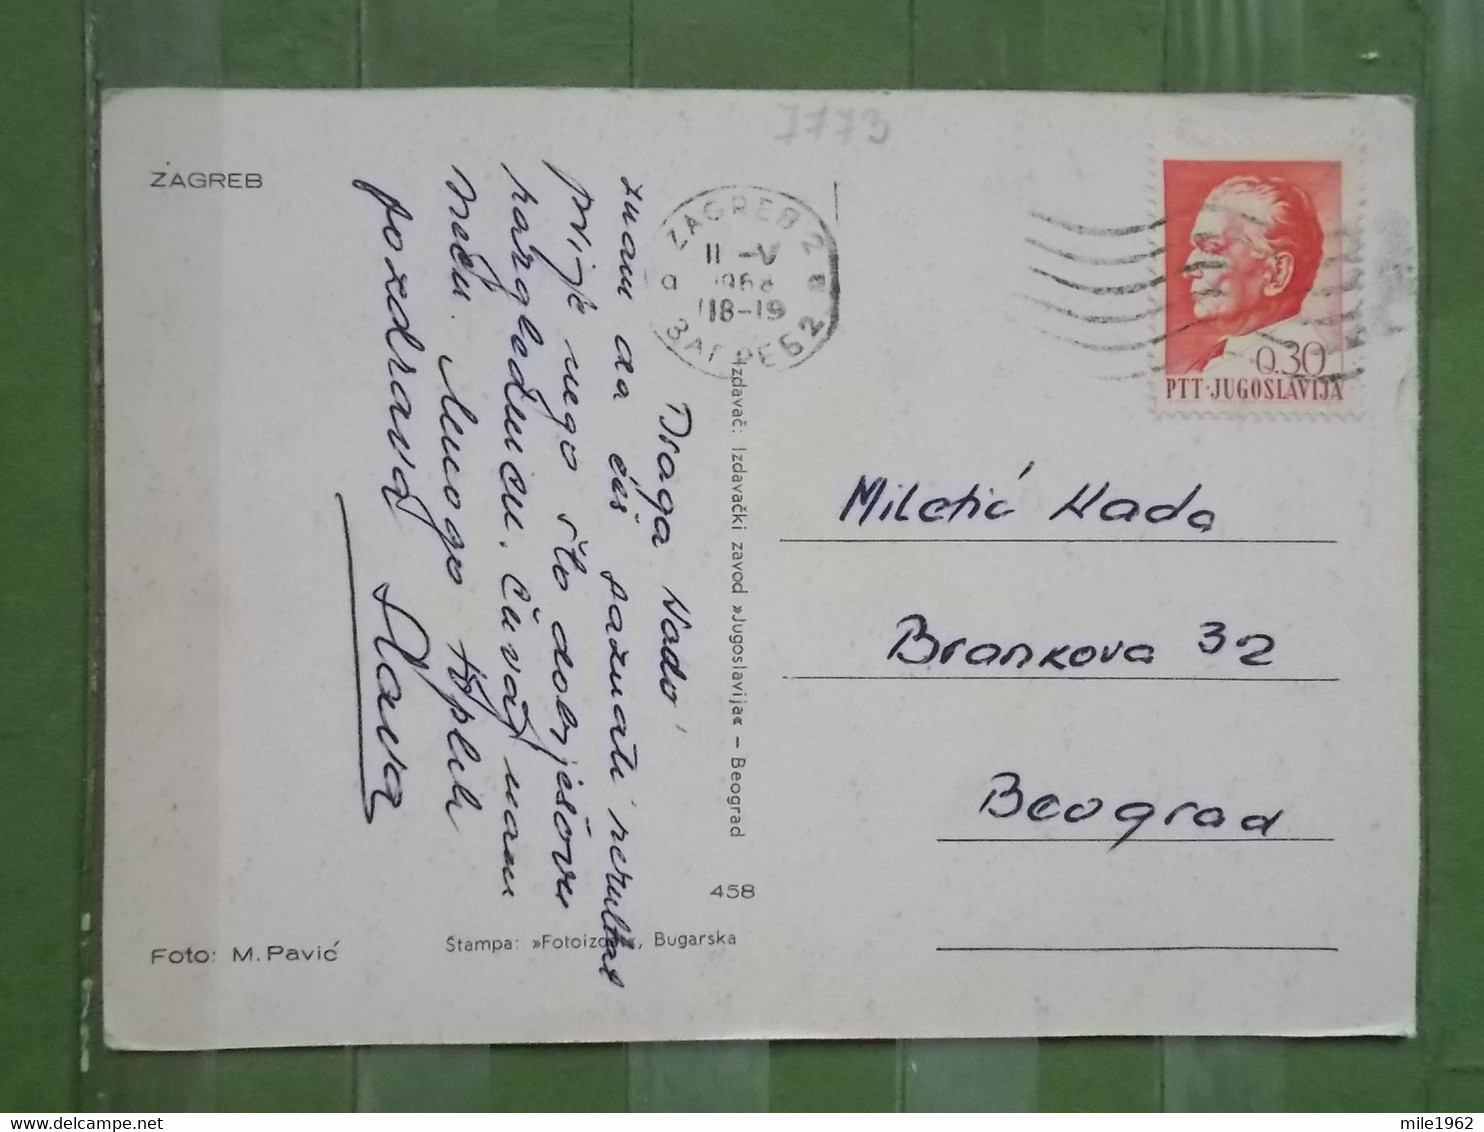 7773
ZAGREB
ZAGREB 2
11 -V
1968
18-19
ЗАГРЕБ 2
0.30
PTT·JUGOSLAVIJA
Draga Nado
znam da ćeš saznati rezultat
prije nego što dobiješ ovu
razglednicu. Čuvaj nam
među. Mnogo toplih
pozdrava
Slava
Miletić Nada
Brankova 32
Beograd
Izdavač: Izdavački zavod »Jugoslavija« – Beograd
458
Štampa: »Fotoizdat«, Bugarska
Foto: M. Pavić
mile1962